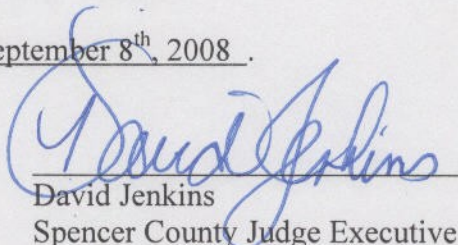 eptember 8th, 2008 .
David Jenkins
David Jenkins
Spencer County Judge Executive